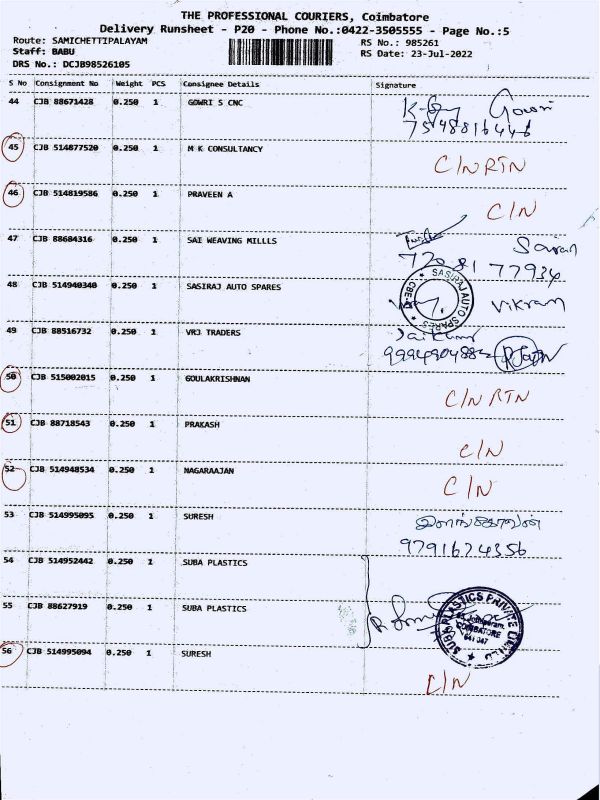 THE PROFESSIONAL COURIERS, Coimbatore
Delivery Runsheet - P20 - Phone No.:0422-3505555 - Page No.:5
Route: SAMICHETTIPALAYAM RS No.: 985261
Staff: BABU RS Date: 23-Jul-2022
DRS No.: DCJB98526105
S No Consignment No Weight PCS Consignee Details Signature
44 CJB 88671428 0.250 1 GOWRI S CNC Gowri
7548816446
45 CJB 514877520 0.250 1 M K CONSULTANCY C/N RTN
46 CJB 514819586 0.250 1 PRAVEEN A C/N
47 CJB 88684316 0.250 1 SAI WEAVING MILLLS
77934
48 CJB 514940340 0.250 1 SASIRAJ AUTO SPARES SASIRAJ AUTO SPARES Vikram
49 CJB 88516732 0.250 1 VRJ TRADERS Jai Kumar
9994904882
50 CJB 515002015 0.250 1 GOULAKRISHNAN C/N RTN
51 CJB 88718543 0.250 1 PRAKASH C/N
52 CJB 514948534 0.250 1 NAGARAAJAN C/N
53 CJB 514995095 0.250 1 SURESH இளங்கோவன்
9791674356
54 CJB 514952442 0.250 1 SUBA PLASTICS
55 CJB 88627919 0.250 1 SUBA PLASTICS SUBA PLASTICS PRIVATE LIMITED
COIMBATORE
641 047
56 CJB 514995094 0.250 1 SURESH C/N